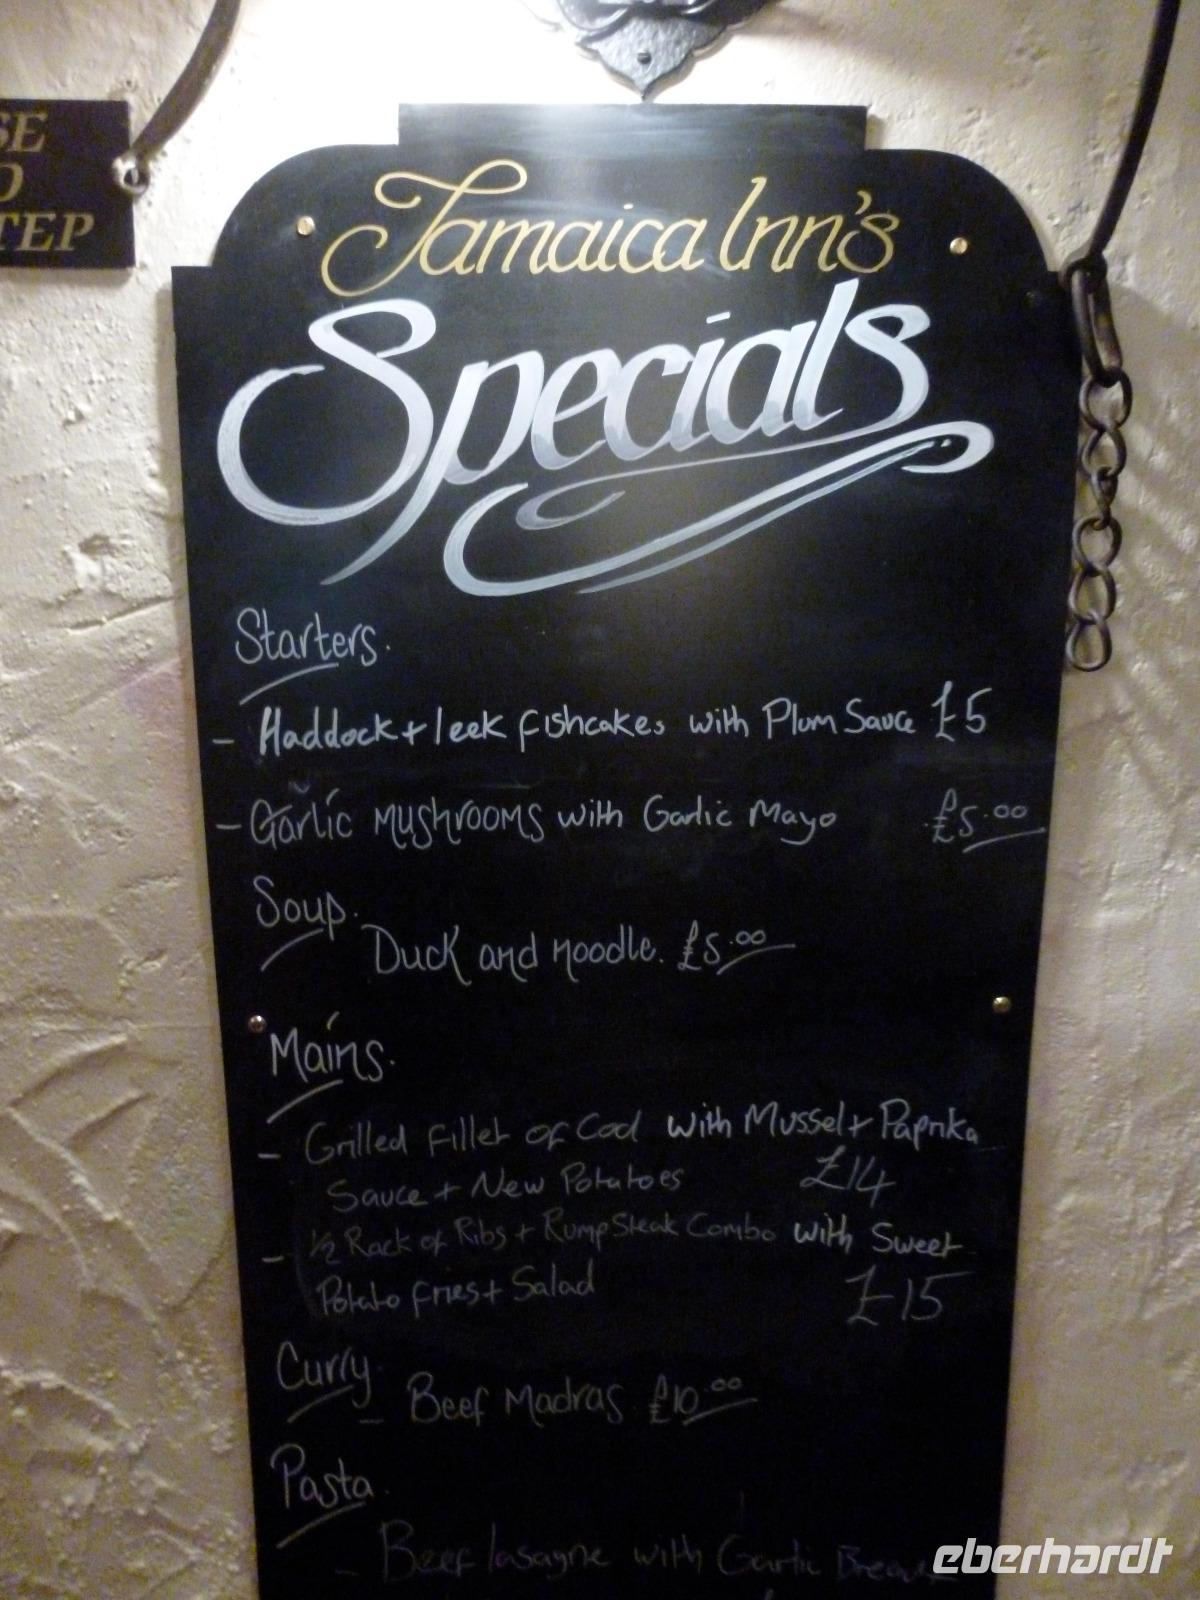 SE
O
TEP
Jamaica Inn's
Specials
Starters.
- Haddock + leek fishcakes with Plum Sauce £5
- Garlic mushrooms with Garlic Mayo £5.00
Soup.
Duck and noodle. £5.00
Mains.
- Grilled fillet of Cod with Mussel + Paprika
Sauce + New Potatoes £14
- 1/2 Rack of Ribs + Rump Steak Combo with Sweet
Potato fries + Salad £15
Curry.
- Beef Madras £10.00
Pasta.
- Beef lasagne with Garlic Bread
eberhardt